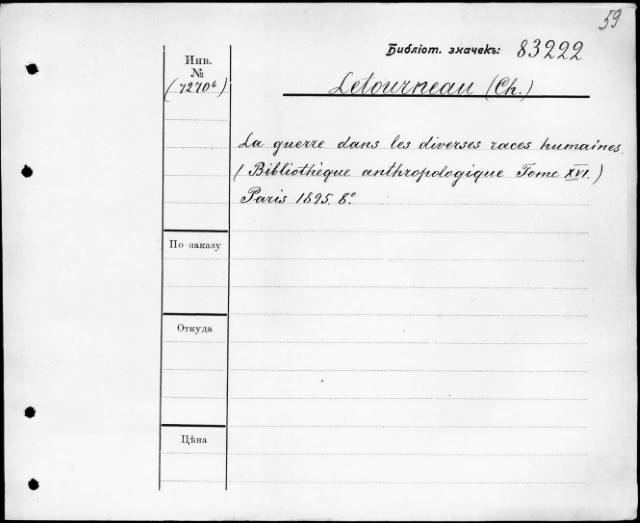 59
Библіот. значекъ: 83222
Инв.
№
(7270б)
Letourneau (Ch.)
La guerre dans les diverses races humaines.
(Bibliothèque anthropologique Tome XVI.)
Paris 1895. 8°.
По заказу
Откуда
Цѣна